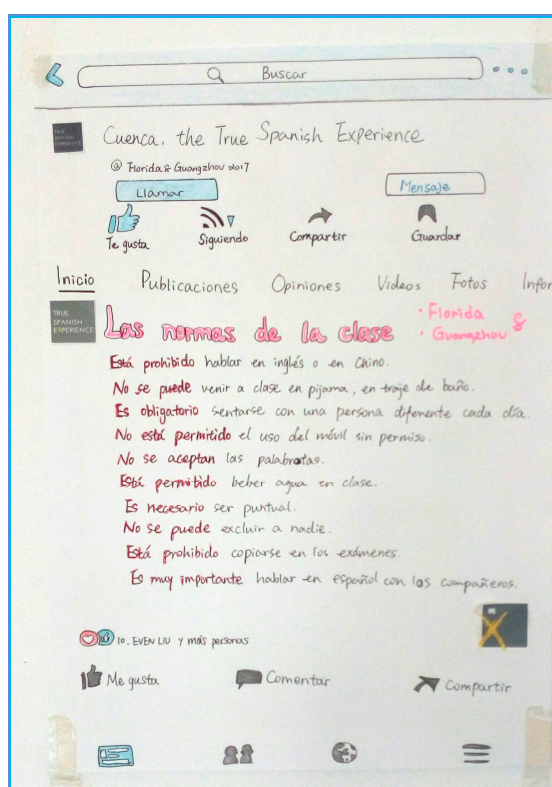 Buscar
TRUE
SPANISH
EXPERIENCE
Cuenca, the True Spanish Experience
@ Florida & Guangzhou 2017
Llamar
Mensaje
Te gusta
Siguiendo
Compartir
Guardar
Inicio Publicaciones Opiniones Videos Fotos Infor
TRUE
SPANISH
EXPERIENCE
Las normas de la clase
· Florida &
· Guangzhou
Está prohibido hablar en inglés o en chino.
No se puede venir a clase en pijama, en traje de baño.
Es obligatorio sentarse con una persona diferente cada día.
No está permitido el uso del móvil sin permiso.
No se aceptan las palabrotas.
Está permitido beber agua en clase.
Es necesario ser puntual.
No se puede excluir a nadie.
Está prohibido copiarse en los exámenes.
Es muy importante hablar en español con los compañeros.
10. EVEN LIU y más personas
Me gusta
Comentar
Compartir